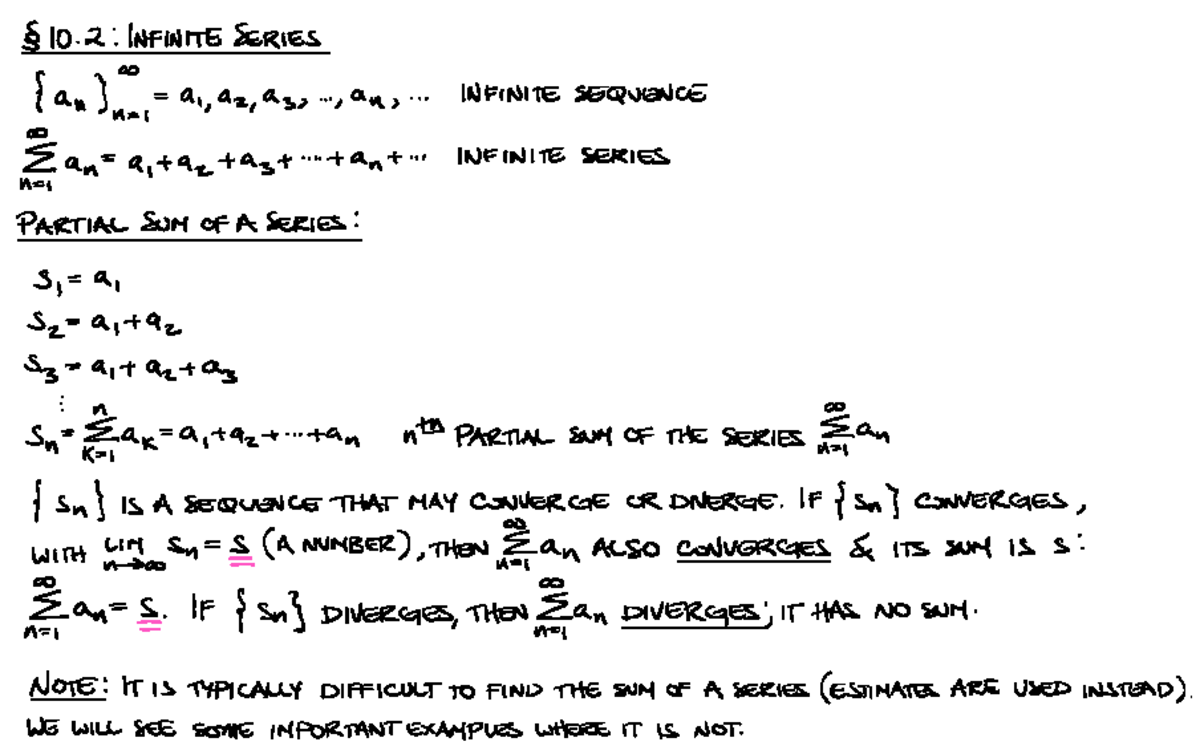 § 10.2: INFINITE SERIES
{aₙ}ₙ₌₁^∞ = a₁, a₂, a₃, ..., aₙ, ... INFINITE SEQUENCE
∑ₙ₌₁^∞ aₙ = a₁ + a₂ + a₃ + ... + aₙ + ... INFINITE SERIES
PARTIAL SUM OF A SERIES:
S₁ = a₁
S₂ = a₁ + a₂
S₃ = a₁ + a₂ + a₃
⋮
Sₙ = ∑ₖ₌₁^n aₖ = a₁ + a₂ + ... + aₙ nᵗʰ PARTIAL SUM OF THE SERIES ∑ₙ₌₁^∞ aₙ
{Sₙ} IS A SEQUENCE THAT MAY CONVERGE OR DIVERGE. IF {Sₙ} CONVERGES,
WITH LIM n→∞ Sₙ = S (A NUMBER), THEN ∑ₙ₌₁^∞ aₙ ALSO CONVERGES & ITS SUM IS S:
∑ₙ₌₁^∞ aₙ = S. IF {Sₙ} DIVERGES, THEN ∑ₙ₌₁^∞ aₙ DIVERGES; IT HAS NO SUM.
NOTE: IT IS TYPICALLY DIFFICULT TO FIND THE SUM OF A SERIES (ESTIMATES ARE USED INSTEAD).
WE WILL SEE SOME IMPORTANT EXAMPLES WHERE IT IS NOT.